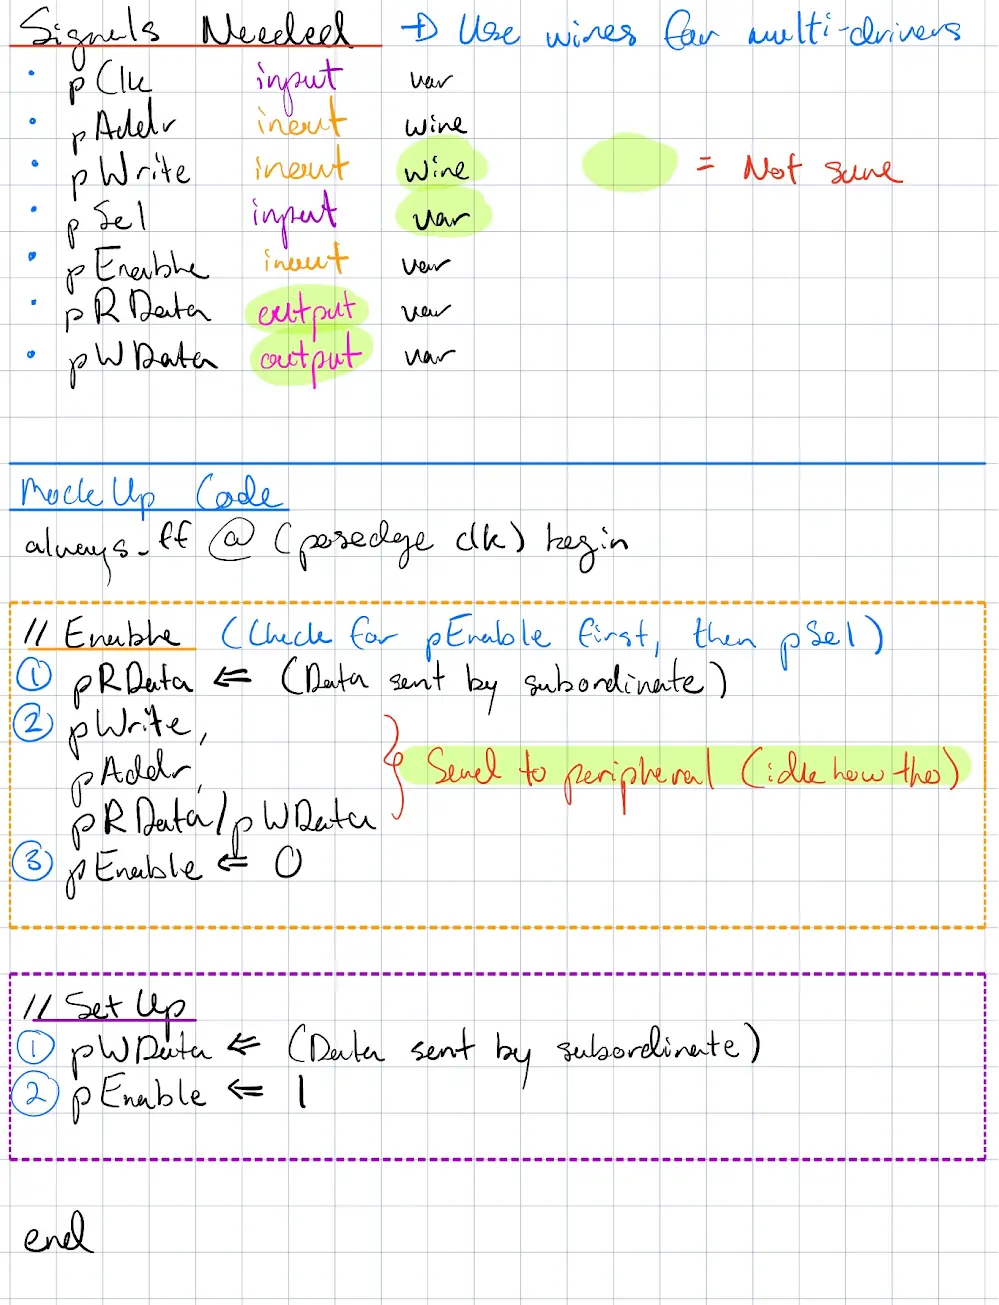 Signals Needed → Use wires for multi-drivers
• pClk input var
• pAddr inout wire
• pWrite inout wire = Not sure
• pSel input var
• pEnable inout var
• pRData output var
• pWData output var
Mock Up Code
always_ff @ (posedge clk) begin
// Enable (Check for pEnable first, then pSel)
① pRData <= (Data sent by subordinate)
② pWrite,
pAddr,
pRData/pWData
} Send to peripheral (idk how tho)
③ pEnable <= 0
// Set Up
① pWData <= (Data sent by subordinate)
② pEnable <= 1
end